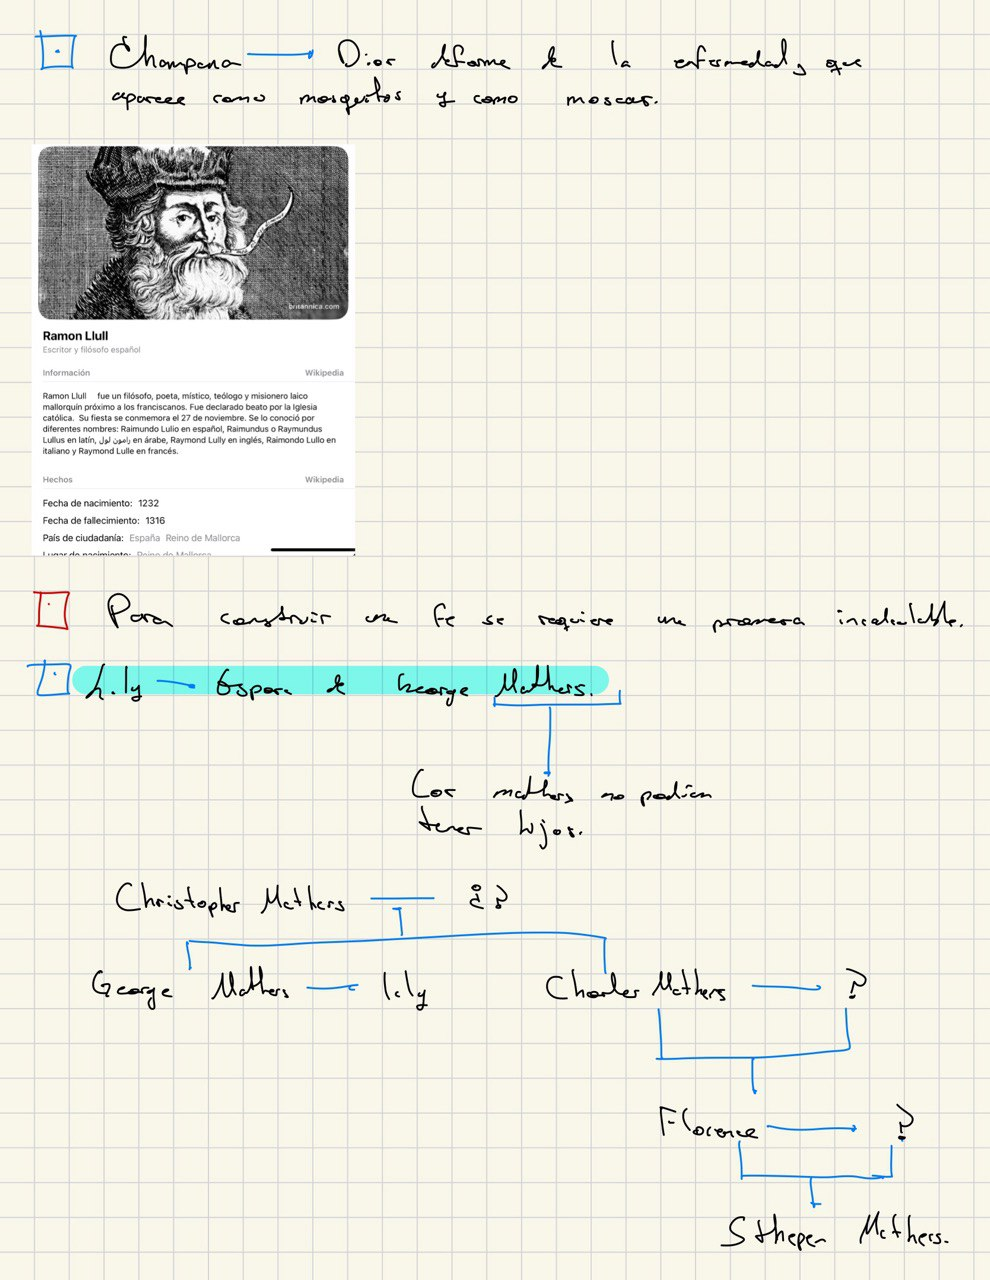 Champana → Dios deforme de la enfermedad, que
aparece como mosquitos y como moscas.
britannica.com
Ramon Llull
Escritor y filósofo español
Información Wikipedia
Ramon Llull fue un filósofo, poeta, místico, teólogo y misionero laico
mallorquín próximo a los franciscanos. Fue declarado beato por la Iglesia
católica. Su fiesta se conmemora el 27 de noviembre. Se lo conoció por
diferentes nombres: Raimundo Lulio en español, Raimundus o Raymundus
Lullus en latín, رامون لول en árabe, Raymond Lully en inglés, Raimondo Lullo en
italiano y Raymond Lulle en francés.
Hechos Wikipedia
Fecha de nacimiento: 1232
Fecha de fallecimiento: 1316
País de ciudadanía: España Reino de Mallorca
Lugar de nacimiento: Reino de Mallorca
Para construir una fe se requiere una promesa incalculable.
Lily → Esposa de George Mathers.
Los mathers no podían
tener hijos.
Christopher Mathers ¿?
George Mathers Lily Charles Mathers → ?
Florence → ?
Sthepen Mathers.